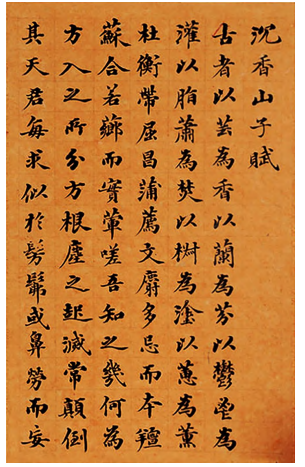 沉香山子賦
古者以芸為香以蘭為芬以鬱鬯為
灌以脂蕭為焚以椒為塗以蕙為薰
杜衡帶屈昌蒲薦文麝多忌而本羶
蘇合若薌而實葷嗟吾知之幾何為
方入之所分方根塵之起滅常顛倒
其天君每求似於髣髴或鼻勞而妄